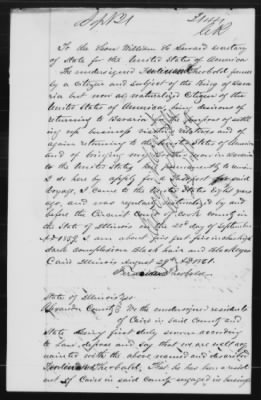 Sept 21
To the Hon William H Seward secretary
of State for the United States of America
The undersigned Ferdinand Theobold formerly
a Citizen and subject of the King of Bava
ria but now a naturalized Citizen of the
United States of America, being desirous of
returning to Bavaria for the purpose of sett
ing up business visiting relatives and of
again returning to the United States of America
and of bringing my
to the United States
do hereby apply for a Passport for said
Voyage, I came to the United States Eight years
ago, and was regularly naturalized by and
before the Circuit Court of Cook county in
the State of Illinois on the 22d day of September
A.D 1859 I am about five feet five inches high
dark complexion black hair and black eyes
Cairo Illinois August 29th AD 1861.
Ferdinand Theobold
State of Illinois
Alexander County We the undersigned residents
of Cairo in said county and
State having first duly sworn according
to Law, depose and say that we are well acq
uainted with the above named and described
Ferdinand Theobald, That he has been a resid
ent of Cairo in said County engaged in business